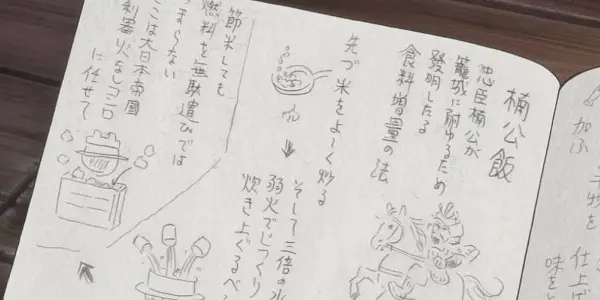 楠公飯
忠臣楠公が
籠城に耐ゆるため
發明したる
食料増量の法
先づ米をよーく炒る
そして三倍の水
弱火でじっくり
炊き上ぐるべ
節米しても
燃料を無駄遣ひでは
つまらない
ここは大日本帝國
利器火なしコンロ
に任せて
加ふ
物を
仕上げ
味をと